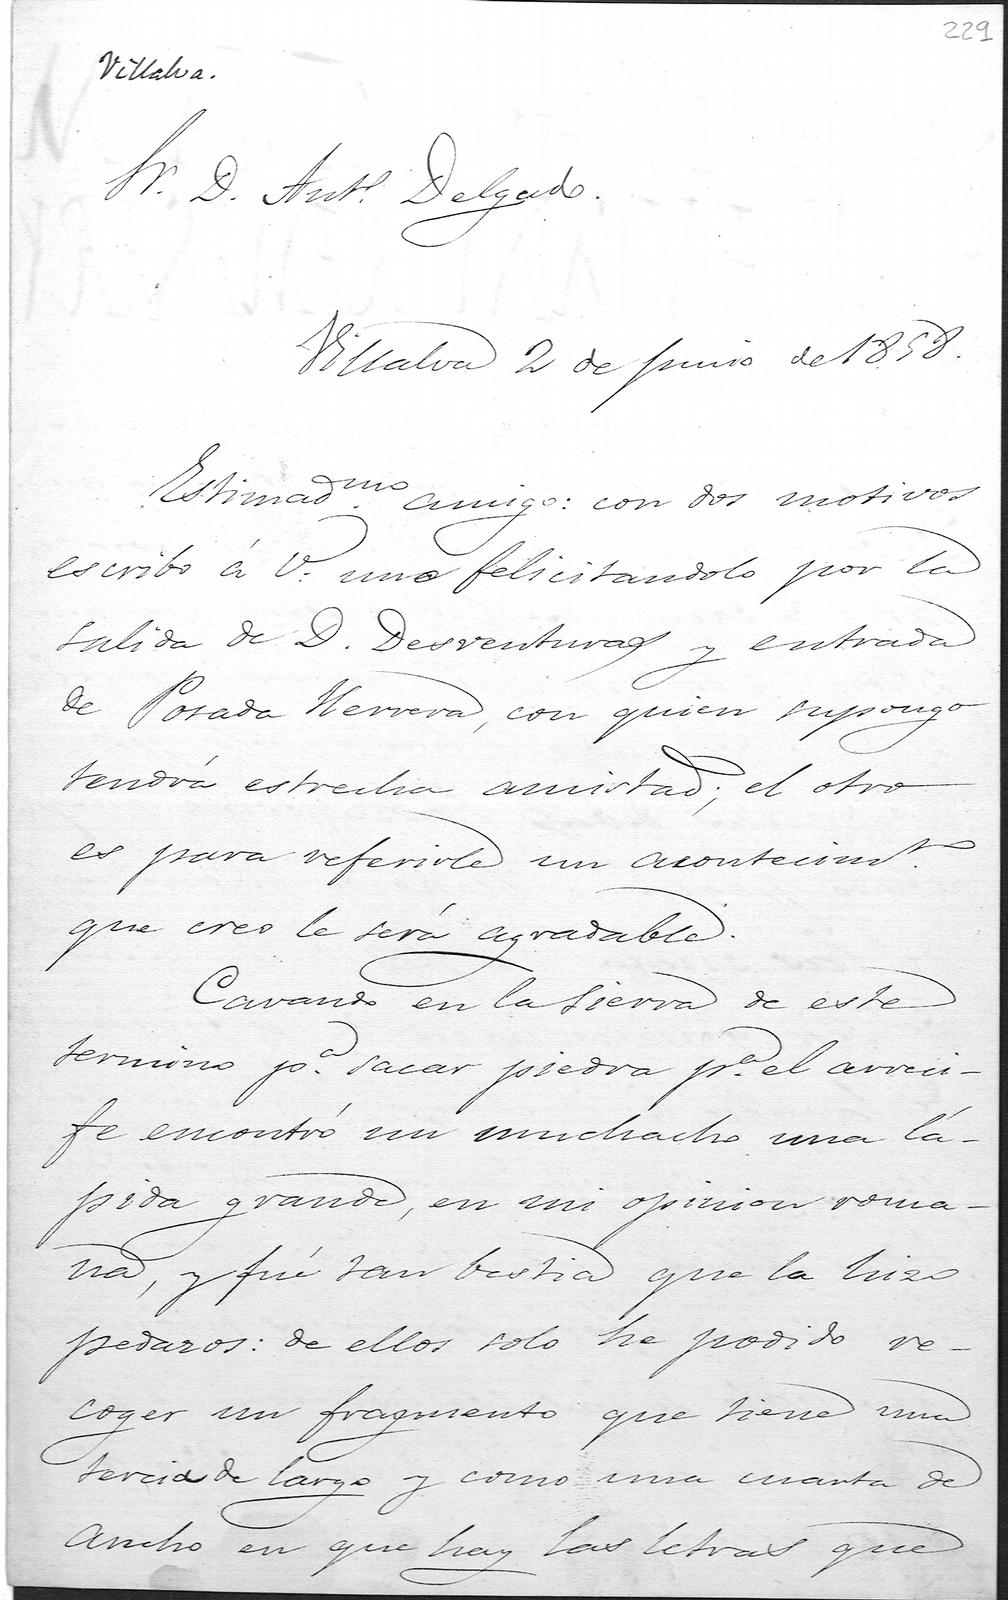 229
Villalva.
Sr. D. Ant.º Delgado.
Villalva 2 de Junio de 1858.
Estimad.mo amigo: con dos motivos
escribo á V. uno felicitandolo por la
salida de D. Desventuras y entrada
de Posada Herrera, con quien supongo
tendrá estrecha amistad; el otro
es para referirle un acontecim.to
que creo le será agradable.
Cavando en la Sierra de este
termino p.a sacar piedra p.a el arreci-
fe encontró un muchacho una lá-
pida grande, en mi opinion roma-
na, y fué tan bestia que la hizo
pedazos: de ellos solo he podido re-
coger un fragmento que tiene una
tercia de largo y como una cuarta de
ancho en que hay las letras que